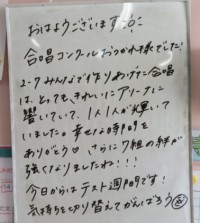 おはようございます
合唱コンクールおつかれ様でした!
2-7みんなで作りあげた合唱
は、とっても、きれいにアリーナに
響いていて、1人1人が輝いて
いました。幸せな時間を
ありがとう♡ さらに7組の絆が
強くなりましたね!!!
今日からはテスト週間です!
気持ちを切り替えてがんばろう